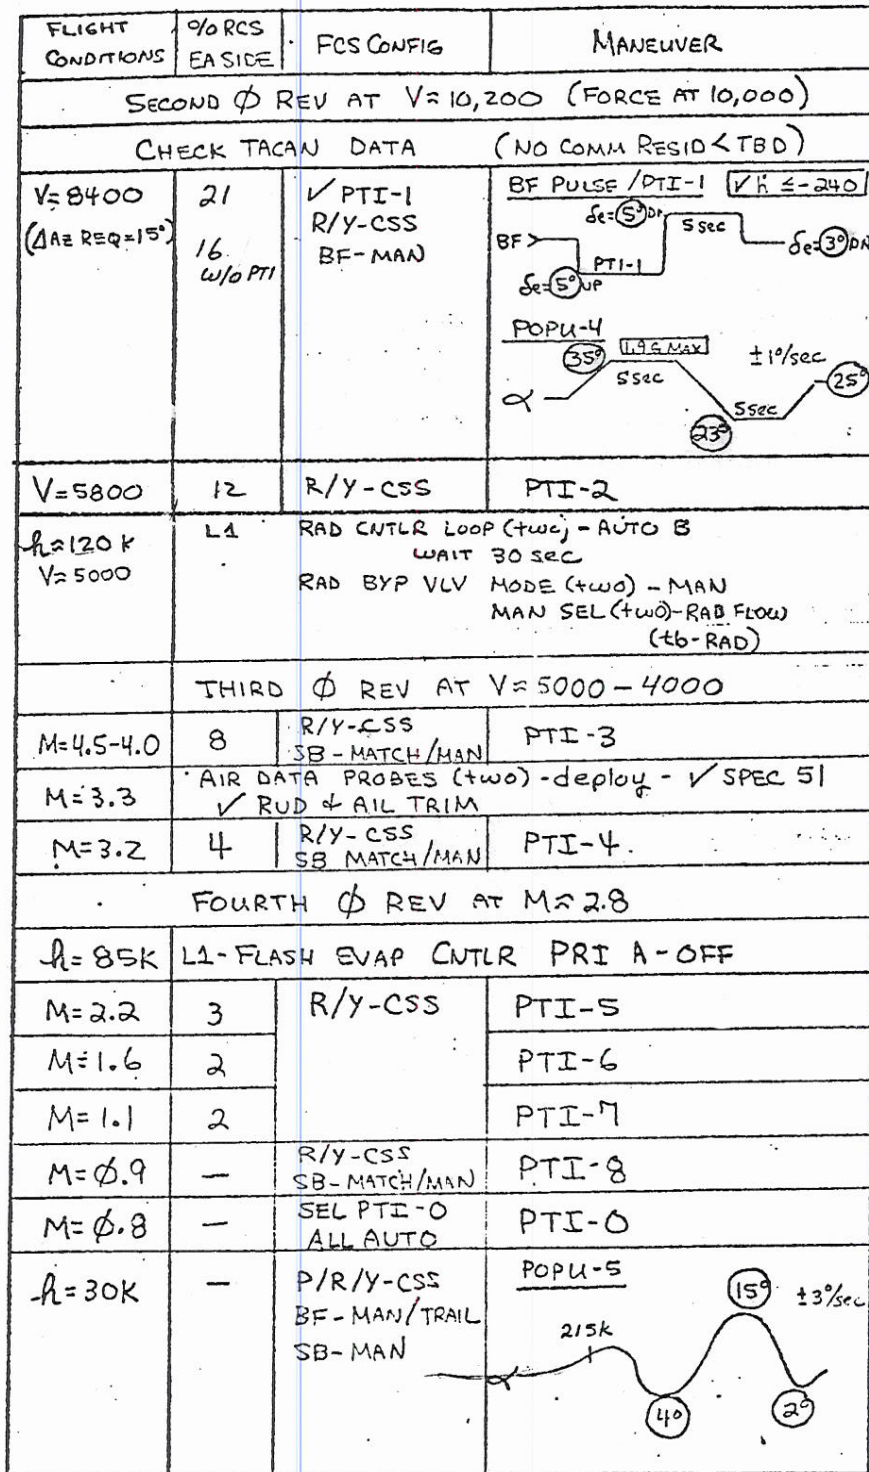 FLIGHT CONDITIONS | % RCS EA SIDE | FCS CONFIG | MANEUVER
SECOND Ø REV AT V≈10,200 (FORCE AT 10,000)
CHECK TACAN DATA (NO COMM RESID < TBD)
V=8400
(ΔAZ REQ=15°)
21
16
W/O PTI
✓ PTI-1
R/Y-CSS
BF-MAN
BF PULSE/PTI-1 ✓ ḣ ≤ -240
δe=5° DN
5 sec
BF>
PTI-1
δe=3° DN
δe=5° UP
POPU-4
35° 1.9 G MAX ±1°/sec
5 sec
25°
α
5 sec
23°
V=5800 | 12 | R/Y-CSS | PTI-2
h≈120K
V≈5000
L1
RAD CNTLR LOOP (two) - AUTO B
WAIT 30 sec
RAD BYP VLV MODE (two) - MAN
MAN SEL (two) - RAD FLOW
(tb-RAD)
THIRD Ø REV AT V≈5000-4000
M=4.5-4.0 | 8 | R/Y-CSS
SB-MATCH/MAN | PTI-3
M=3.3
AIR DATA PROBES (two) - deploy - ✓ SPEC 51
✓ RUD & AIL TRIM
M=3.2 | 4 | R/Y-CSS
SB MATCH/MAN | PTI-4.
FOURTH Ø REV AT M≈2.8
h=85K | L1-FLASH EVAP CNTLR PRI A-OFF
M=2.2 | 3 | R/Y-CSS | PTI-5
M=1.6 | 2 | PTI-6
M=1.1 | 2 | PTI-7
M=Ø.9 | — | R/Y-CSS
SB-MATCH/MAN | PTI-8
M=Ø.8 | — | SEL PTI-O
ALL AUTO | PTI-O
h=30K | —
P/R/Y-CSS
BF-MAN/TRAIL
SB-MAN
POPU-5
15° ±3°/sec
215K
α
4°
2°